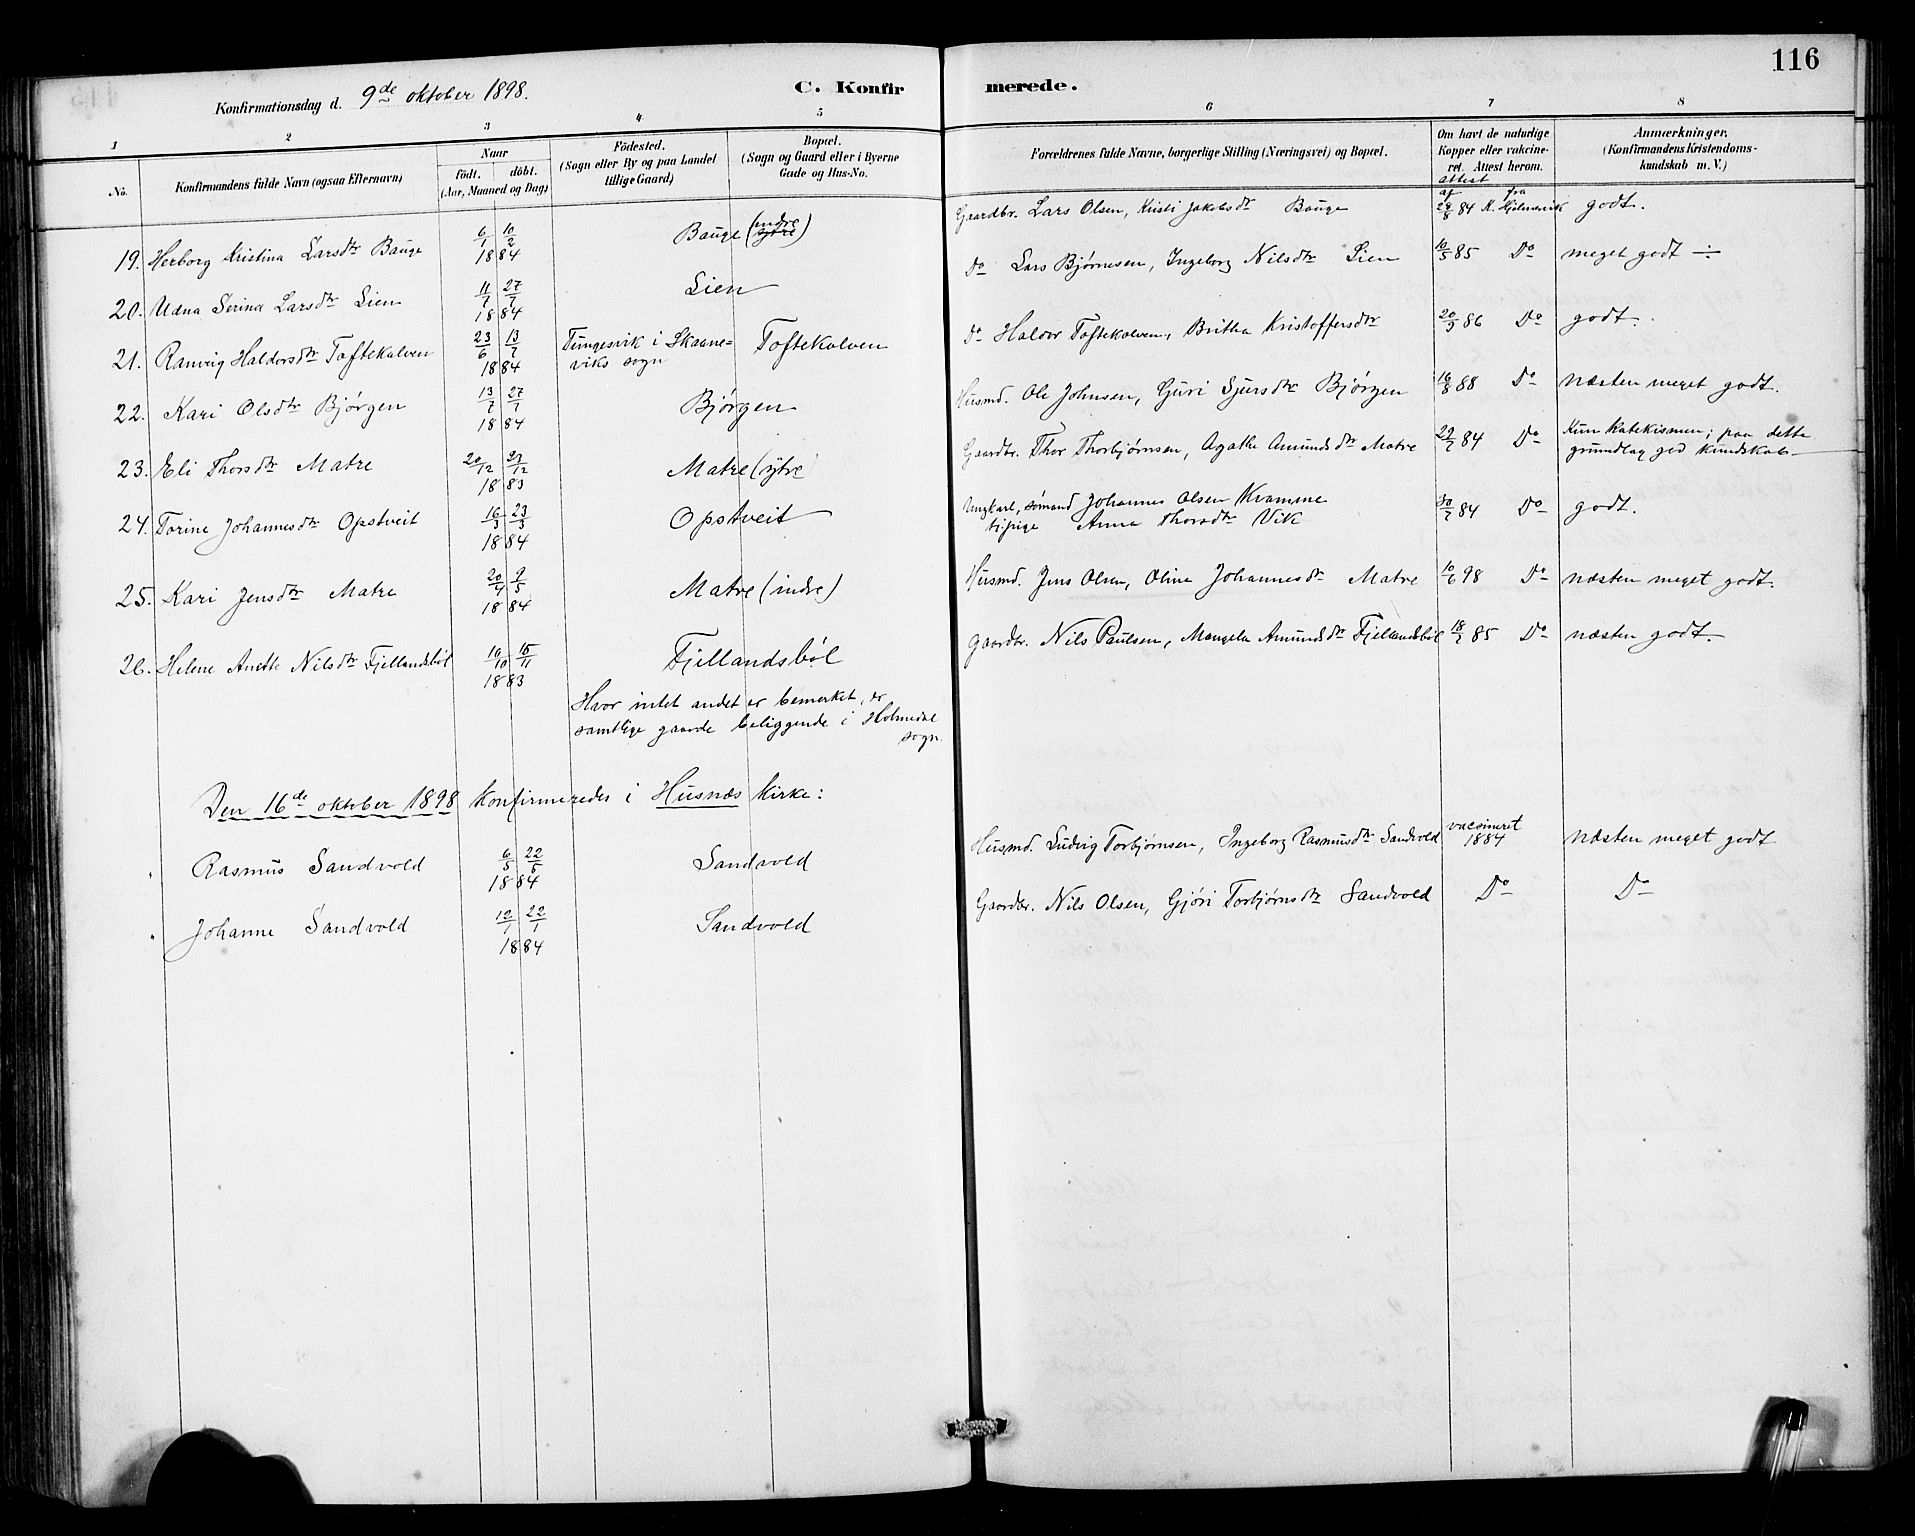 116
Konfirmationsdag d. 9de oktober 1898.
C. Konfir merede.
1 2 3 4 5 6 7 8
No. Konfirmandens fulde Navn (ogsaa Efternavn) Naar födt. döbt. (Aar, Maaned og Dag) Födested. (Sogn eller By og paa Landet tillige Gaard) Bopæl. (Sogn og Gaard eller i Byerne Gade og Hus-No. Forældrenes fulde Navne, borgerlige Stilling (Næringsvei) og Bopæl. Om havt de naturlige Kopper eller vakcineret. Attest herom. Anmærkninger. (Konfirmandens Kristendomskundskab m. V.)
attest af fra
19. Herborg Kristina Larsdtr Bauge 6/1 10/2 1884 Bauge (indre) Gaardbr. Lars Olsen, Kristi Jakobsdtr Bauge 24/8 84 K. Hjelmervik godt.
20. Udna Serina Larsdtr Lien 11/7 27/7 1884 Lien Do Lars Bjørnesen, Ingeborg Nilsdtr Lien 10/5 85 Do meget godt ÷
21. Ranveig Haldorsdtr Toftekalven 23/6 13/7 1884 Tungesvik i Skaaneviks sogn Toftekalven Do Haldor Toftekalven, Britha Kristoffersdtr 20/9 86 Do godt.
22. Kari Olsdtr Bjørgen 13/7 27/7 1884 Bjørgen Husmd. Ole Johnsen, Guri Sjursdtr Bjørgen 16/8 88 Do næsten meget godt.
23. Eli Thorsdtr Matre 20/12 23/12 1883 Matre (ytre Gaardbr. Thor Thorbjørnsen, Agathe Amundsdtr Matre 22/7 84 Do Kun katekismen; paa dette grundlag god kundskab
24. Torine Johannesdtr Opstveit 16/3 23/3 1884 Opstveit Ungkarl, sømand Johannes Olsen Kramme tjpige Anna Thorsdtr Vik 30/7 84 Do godt.
25. Kari Jensdtr Matre 20/4 9/5 1884 Matre (indre) Husmd. Jens Olsen, Oline Johannesdtr Matre 10/6 98 Do næsten meget godt.
26. Helene Anette Nilsdtr Fjellandsbøl 19/10 15/11 1883 Fjellandsbøl gaardbr. Nils Paulsen, Mangela Amundsdtr Fjellandsbøl 18/7 85 Do næsten godt.
Hvor intet andet er bemerket, er
samtlige gaarde beliggende i Holmedal
sogn.
Den 16de oktober 1898 konfirmeredes i Husnæs kirke:
" Rasmus Sandvold 6/5 22/5 1884 Sandvold Husmd. Ludvig Torbjørnsen, Ingeborg Rasmusdtr Sandvold vacsineret 1884 næsten meget godt
" Johanne Sandvold 12/1 22/1 1884 Sandvold Gaardbr. Nils Olsen, Gjøri Torbjørnsdtr Sandvold Do Do